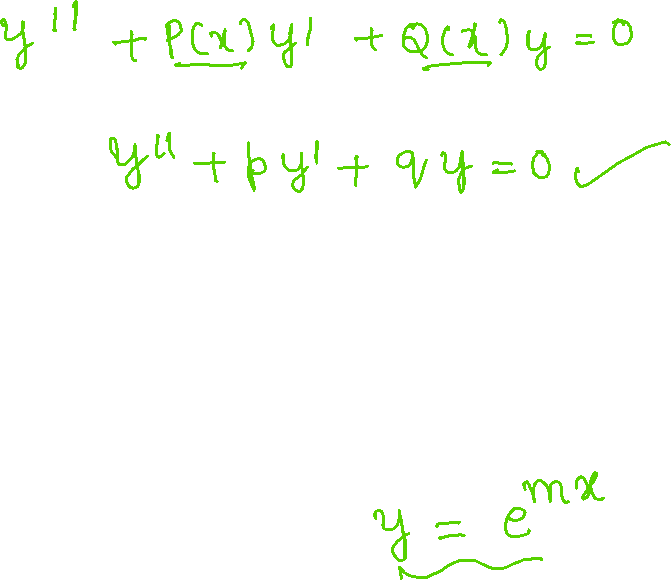 y'' + P(x)y' + Q(x)y = 0
y'' + py' + qy = 0 ✓
y = e^{mx}